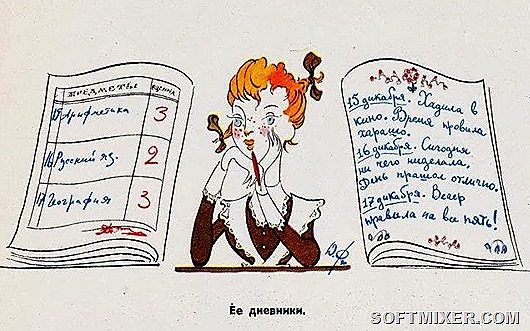 ПРЕДМЕТЫ ОЦЕНКА
15 Арифметика 3
16 Русский яз. 2
17 География 3
15 декабря. Хадила в
кино. Время провила
харашо.
16 декабря. Сигодня
ни чего ниделала,
День прашол отлично.
17 декабря. Вечер
правила на вси пять!
Ее дневники.
SOFTMIXER.COM